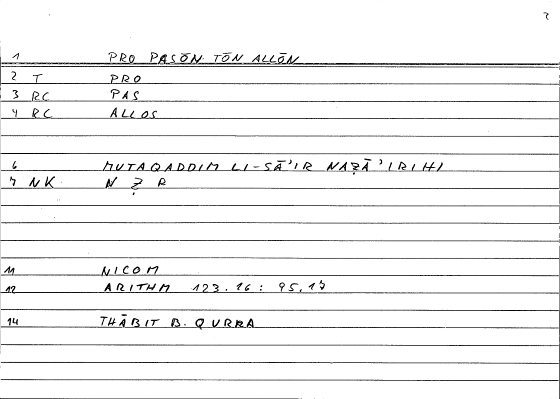 2
1 PRO PASŌN TŌN ALLŌN
2 T PRO
3 RC PAS
4 RC ALLOS
6 MUTAQADDIM LI-SĀ'IR NAẒĀ'IRIHI
7 NK N Ẓ R
11 NICOM
12 ARITHM 123.16 : 95,17
14 THĀBIT B. QURRA